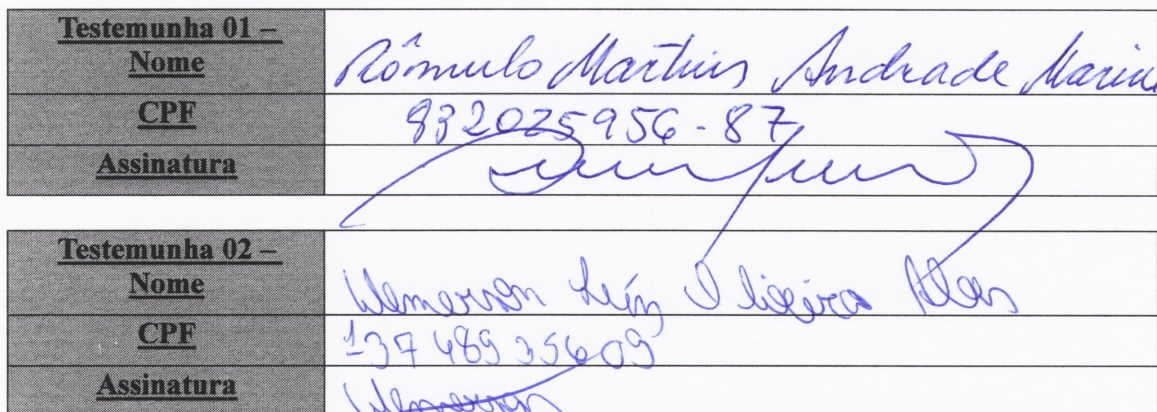 Testemunha 01 –
Nome
Rômulo Martins Andrade
CPF
932025956-87
Assinatura
Testemunha 02 –
Nome
Wemerson Luís Oliveira Alves
CPF
137 489 356 09
Assinatura
Wemerson